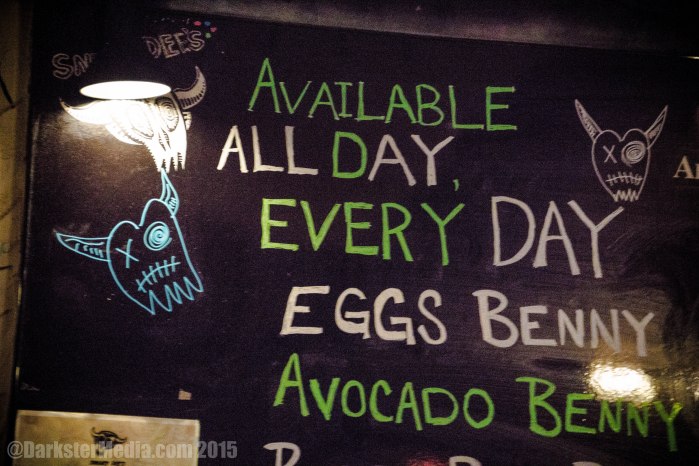 DEE'S
AVAILABLE
ALL DAY,
EVERY DAY
EGGS BENNY
AVOCADO BENNY
@DarksterMedia.com2015